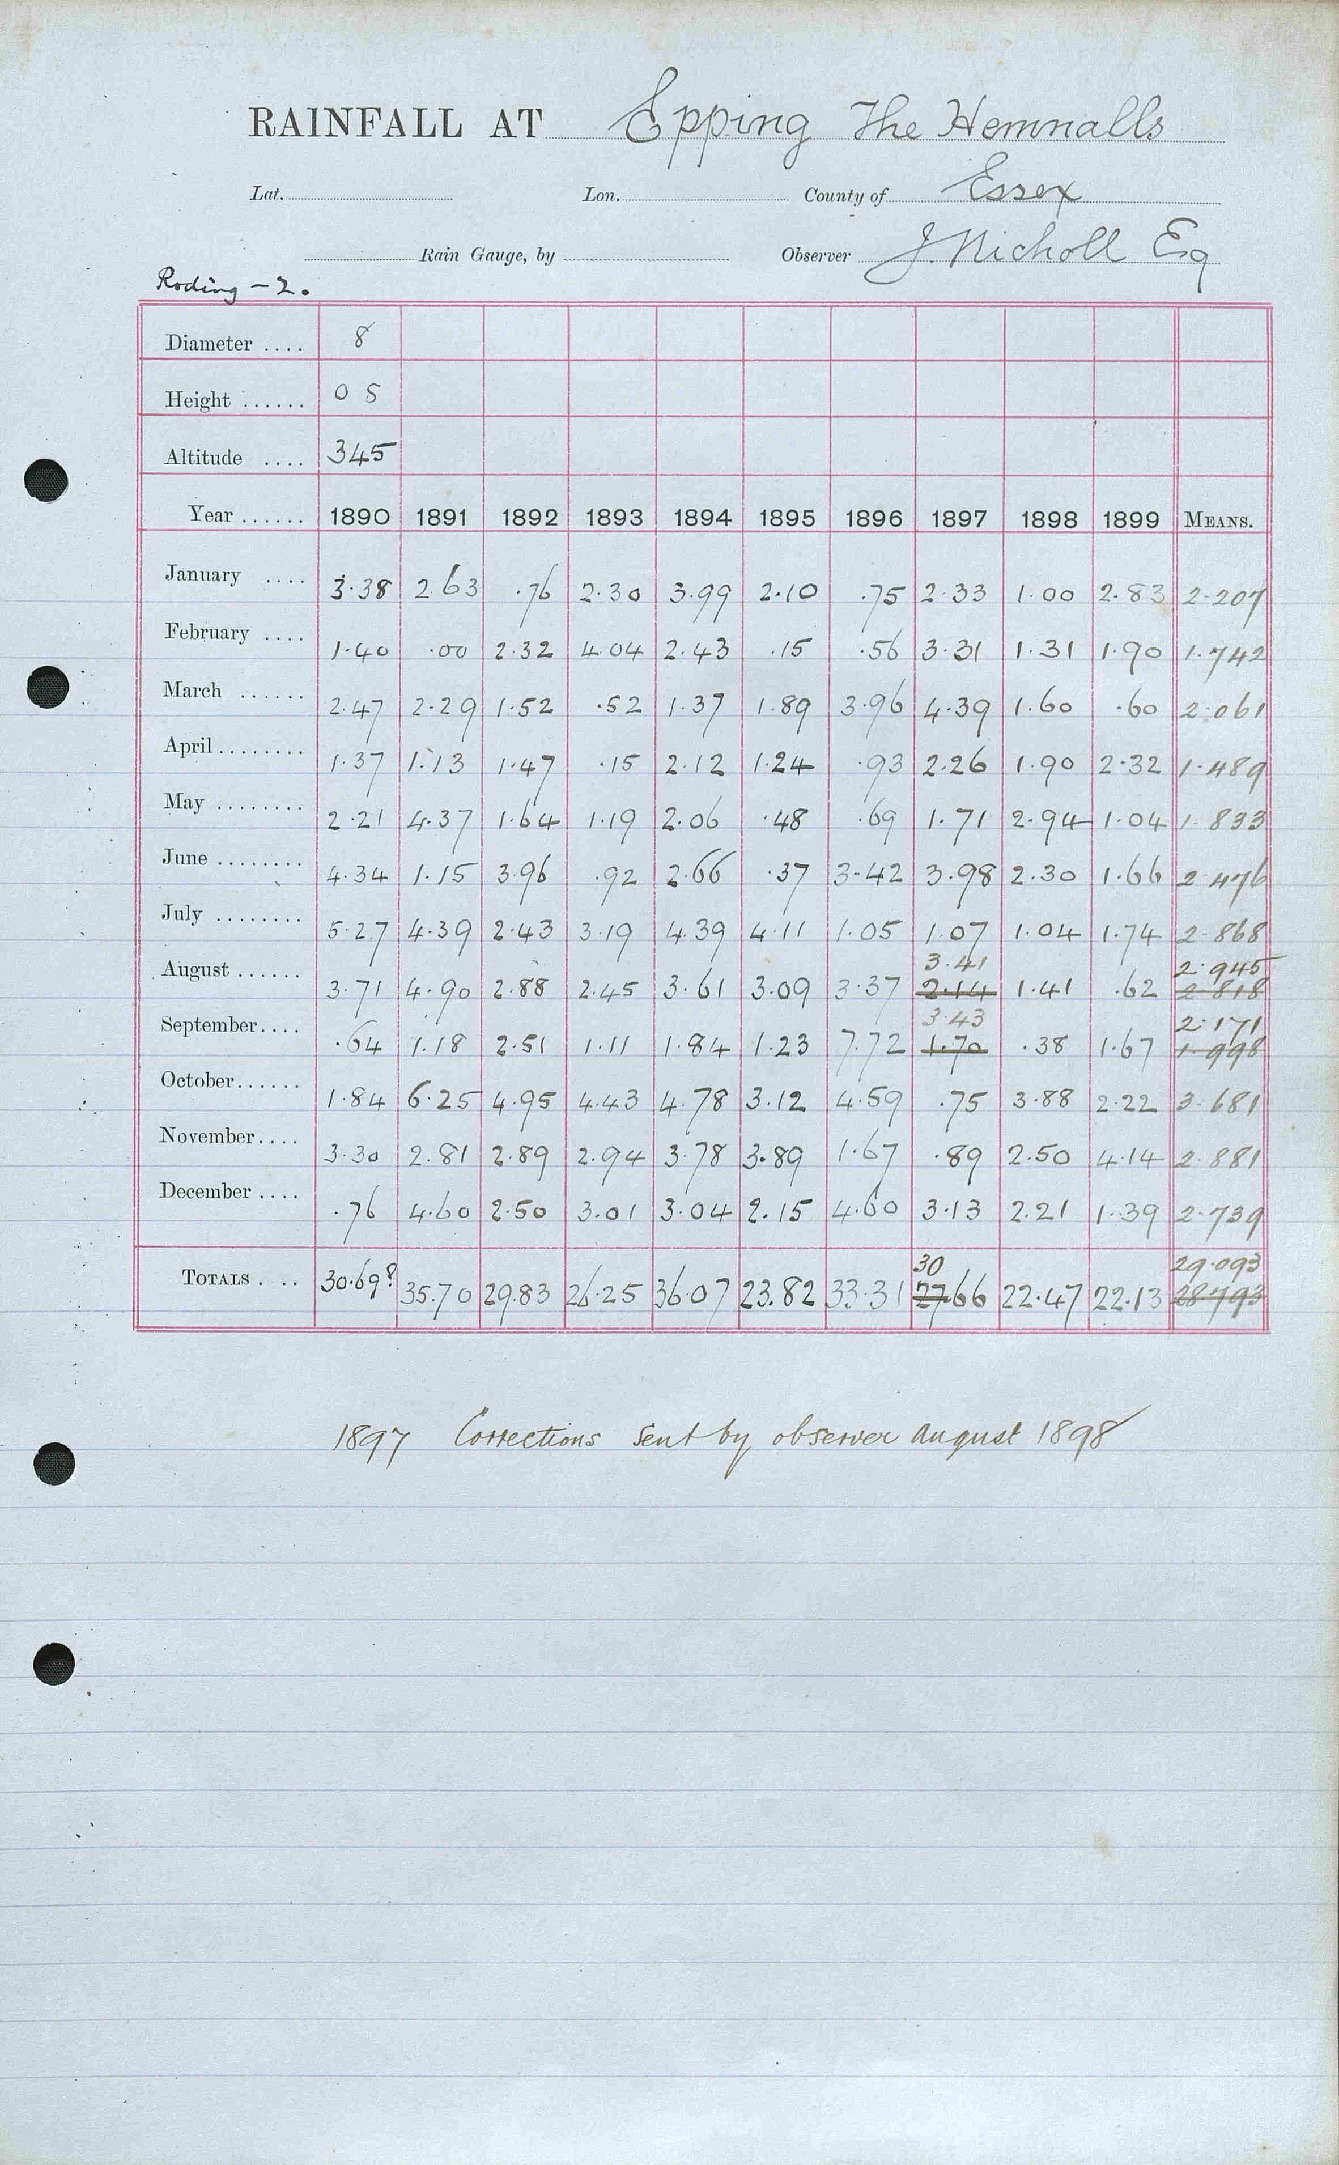 RAINFALL AT Epping The Hemnalls
Lat. Lon. County of Essex
Rain Gauge, by Observer J. Nicholl Esq
Roding - 2.
Diameter .... 8
Height ...... 0 8
Altitude .... 345
Year ...... 1890 1891 1892 1893 1894 1895 1896 1897 1898 1899 MEANS.
January .... 3.38 2.63 .76 2.30 3.99 2.10 .75 2.33 1.00 2.83 2.207
February .... 1.40 .00 2.32 4.04 2.43 .15 .56 3.31 1.31 1.90 1.742
March ...... 2.47 2.29 1.52 .52 1.37 1.89 3.96 4.39 1.60 .60 2.061
April ........ 1.37 1.13 1.47 .15 2.12 1.24 .93 2.26 1.90 2.32 1.489
May ........ 2.21 4.37 1.64 1.19 2.06 .48 .69 1.71 2.94 1.04 1.833
June ........ 4.34 1.15 3.96 .92 2.66 .37 3.42 3.98 2.30 1.66 2.476
July ........ 5.27 4.39 2.43 3.19 4.39 4.11 1.05 1.07 1.04 1.74 2.868
3.41 2.945
August ...... 3.71 4.90 2.88 2.45 3.61 3.09 3.37 2.14 1.41 .62 2.818
3.43 2.171
September .... .64 1.18 2.51 1.11 1.84 1.23 7.72 1.70 .38 1.67 1.998
October ...... 1.84 6.25 4.95 4.43 4.78 3.12 4.59 .75 3.88 2.22 3.681
November .... 3.30 2.81 2.89 2.94 3.78 3.89 1.67 .89 2.50 4.14 2.881
December .... .76 4.60 2.50 3.01 3.04 2.15 4.60 3.13 2.21 1.39 2.739
30 29.093
TOTALS .... 30.69? 35.70 29.83 26.25 36.07 23.82 33.31 27.66 22.47 22.13 28.793
1897 Corrections sent by observer August 1898